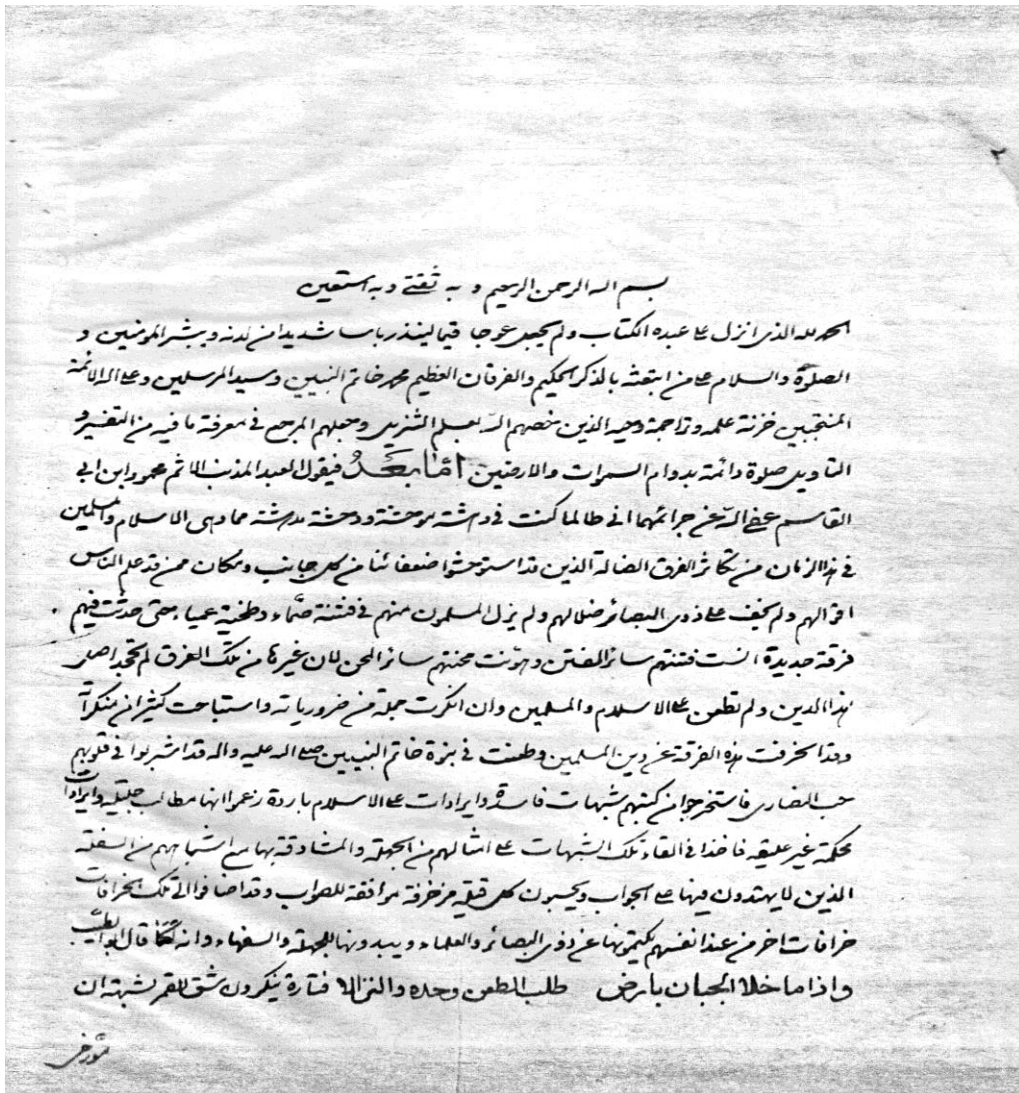 ٢
بسم اله الرحمن الرحيم و به ثقتي و به استعين
الحمد لله الذى انزل على عبده الكتاب ولم يجعل عوجا قيما لينذر باسا شديدا من لدنه ويبشر المؤمنين و
الصلوة والسلام على من ابتعثه بالذكر الحكيم والفرقان العظيم محمد خاتم النبيين وسيد المرسلين وعلى اله الائمة
المنتجبين خزنة علمه وتراجمة وحيه الذين خصهم اله بعلم التنزيل وجعلهم المرجع فى معرفة ما فيه من التفسير و
التاويل صلوة دائمة بدوام السموات والارضين امّا بعَدُ فيقول العبد المذنب الاثم محمود ابن ابي
القاسم عفى اله عن جرائمهما انى طالما كنت فى دهشة موحشة ووحشة مدهشة مما دهى الاسلام والمسلمين
فى هذا الزمان من تكاثر الفرق الضالة الذين قد استوحشوا ضعفائنا من كل جانب ومكان ممن قد علم الناس
اقوالهم ولم يخف على ذوى البصائر ضلالهم ولم يزل المسلمون منهم فى فتنة صمّاء و عمياء حتى حدثت فيهم
فرقة جديدة انست فتنتهم سائر الفتن وهوّنت محنتهم سائر المحن لان غيرها من تلك الفرق لم تجحد اصل
هذا الدين ولم تطعن على الاسلام والمسلمين وان انكرت جملة من ضرورياته واستباحت كثيرا من منكراته
وقد انحرفت هذه الفرقة عن دين المسلمين وطعنت فى نبوة خاتم النبيين صلى اله عليه واله قد اشربوا فى قلوبهم
حب النصارى فاستخرجوا من كتبهم شبهات فاسدة وايرادات على الاسلام باردة زعموا انها مطالب جليلة وايرادات
محكمة غير عليلة فاخذوا فى القاء تلك الشبهات على امثالهم من الجهلة والمشادقة بها مع اشباههم من السفلة
الذين لا يهتدون فيها على الجواب ويحسبون كل مزخرفة موافقة للصواب وقد اضافوا الى تلك الخرافات
خرافات اخر من عند انفسهم يكتمونها عن ذوى البصائر والعلماء ويبدونها للجهلة والسفهاء وانه كما قال ابو الطيب
واذا ما خلا الجبان بارض طلب الطعن وحده والنزالا فتارة ينكرون شق القمر لشبهة ان